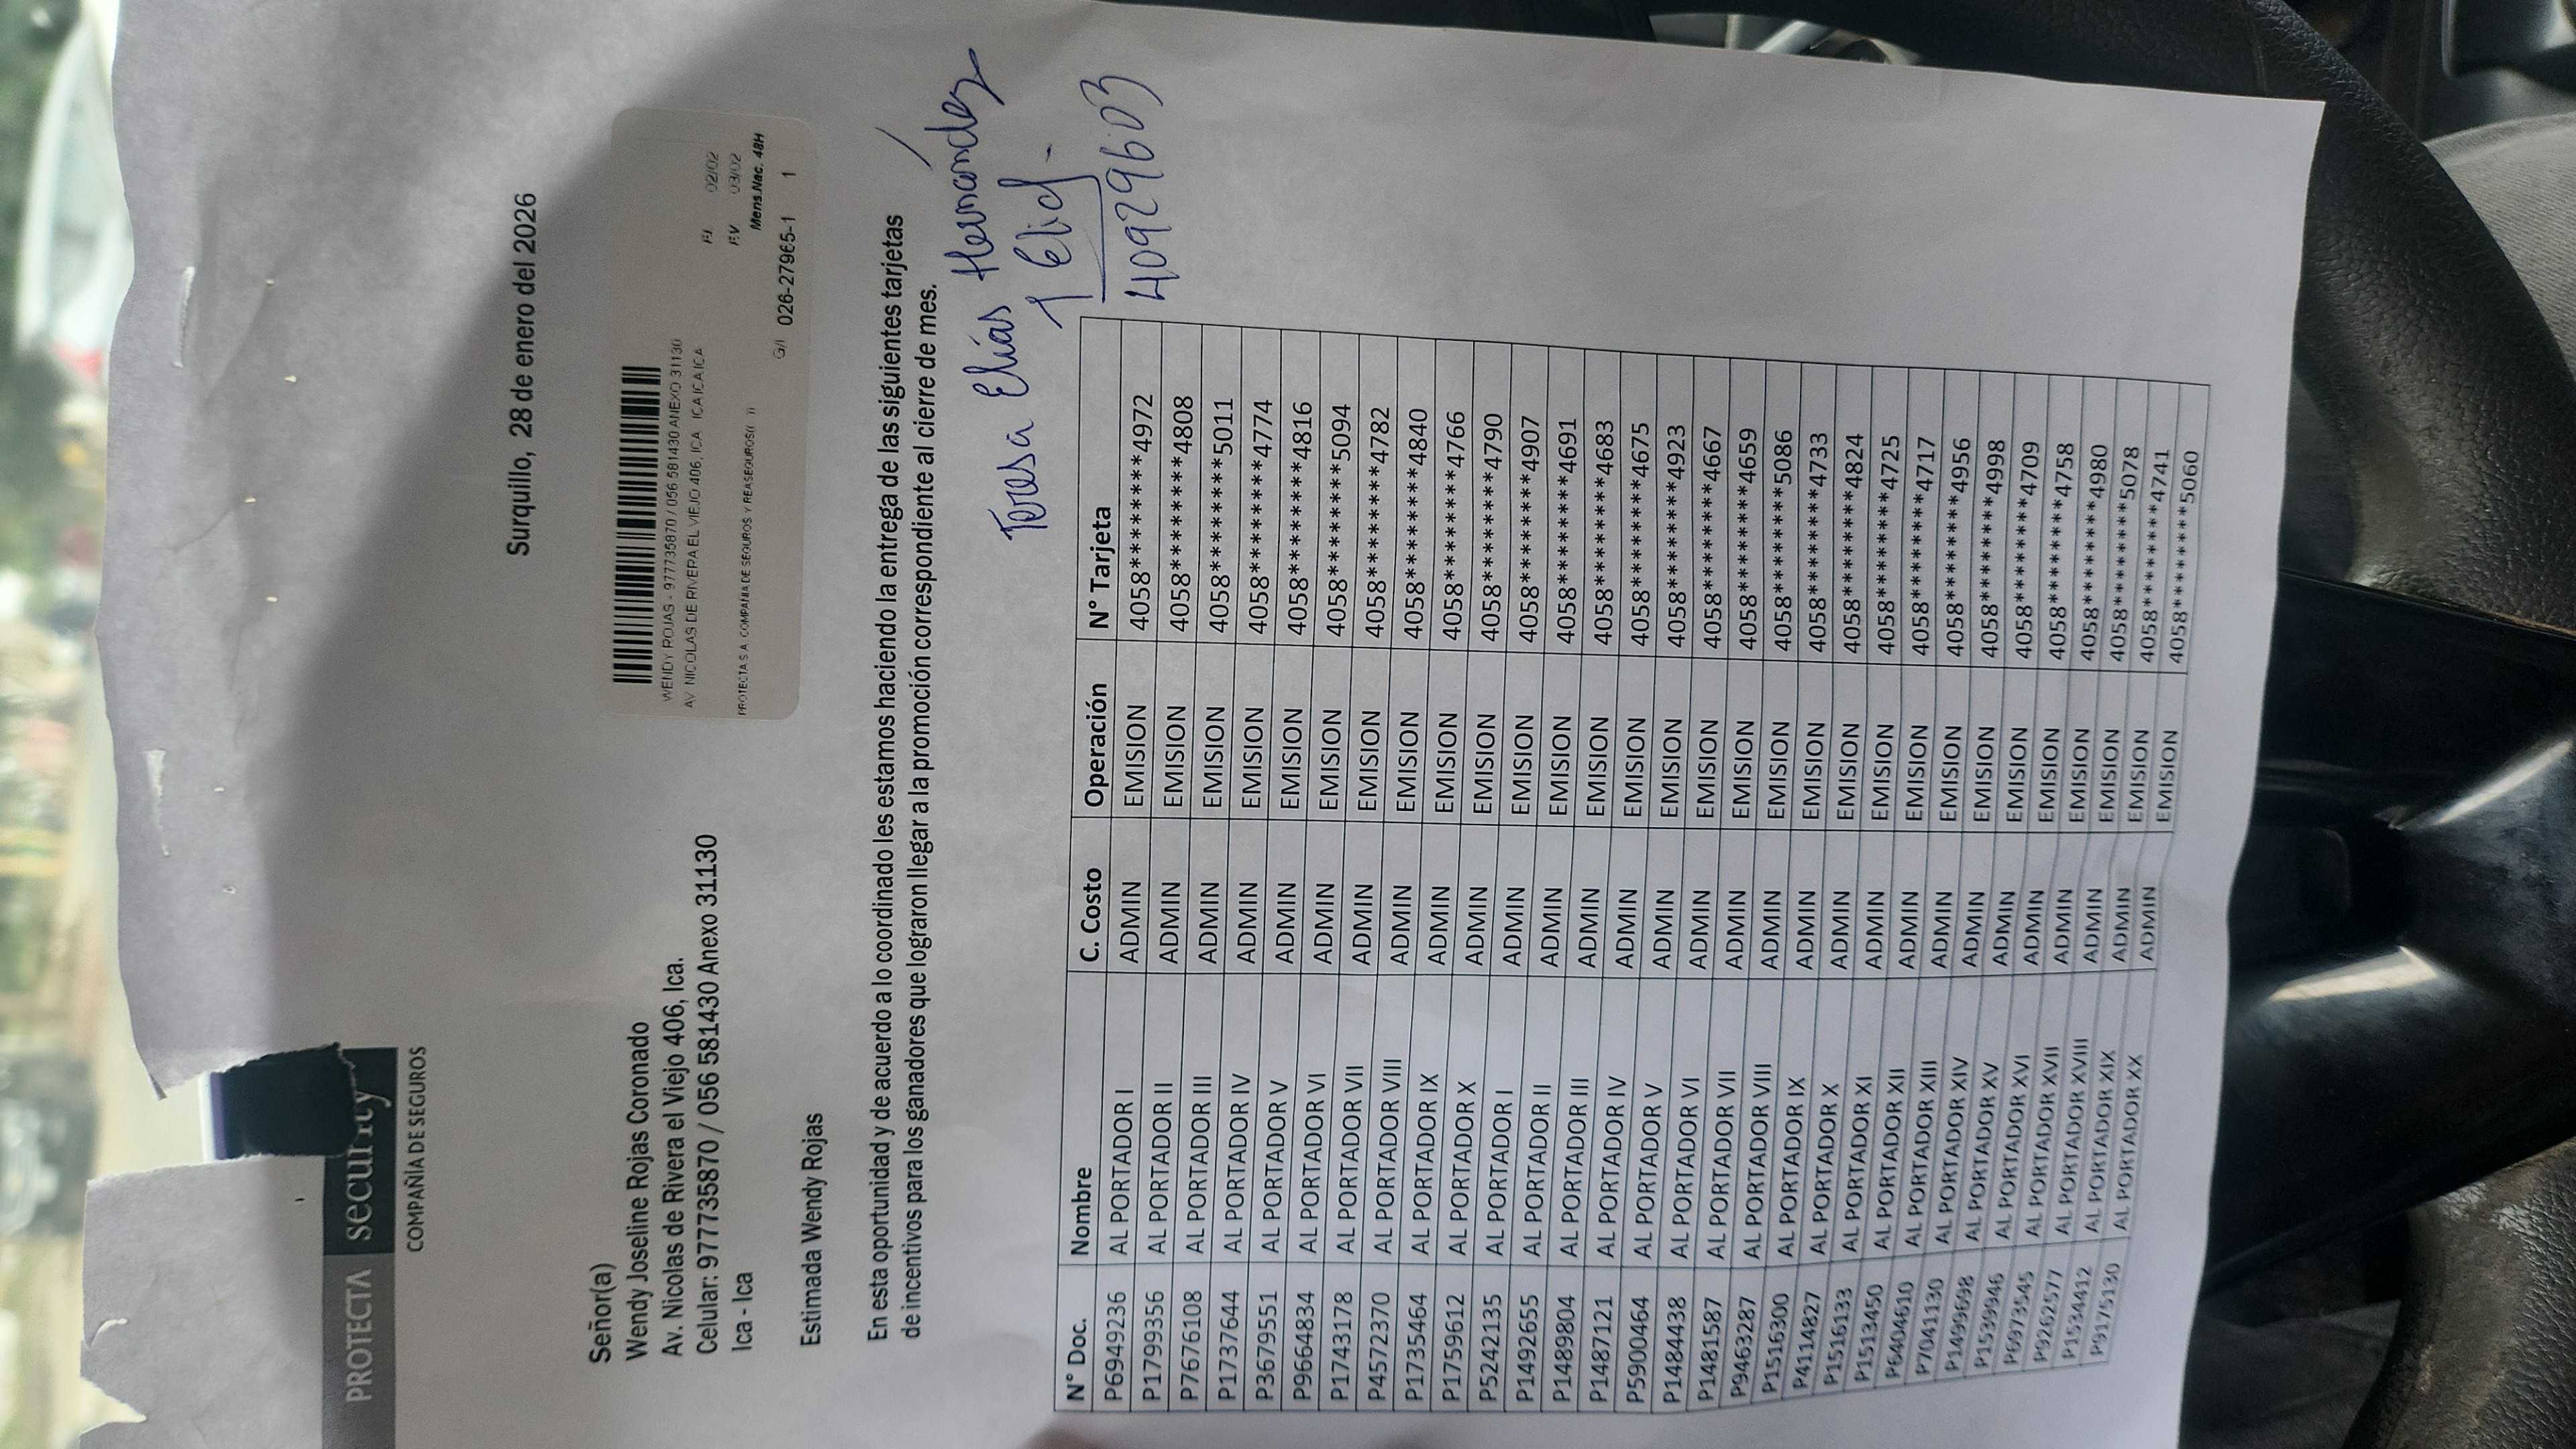 PROTECTA security
COMPAÑÍA DE SEGUROS
Surquillo, 28 de enero del 2026
Señor(a)
Wendy Joseline Rojas Coronado
Av. Nicolas de Rivera el Viejo 406, Ica.
Celular: 977735870 / 056 581430 Anexo 31130
Ica - Ica
WENDY ROJAS - 977735870 / 056 581430 ANEXO 31130
AV NICOLAS DE RIVERA EL VIEJO 406, ICA ICA ICA ICA
02/02
03/02
PROTECTA S A COMPAÑIA DE SEGUROS Y REASEGUROS
Mens.Nac. 48H
G/I 026-27965-1 1
Estimada Wendy Rojas
En esta oportunidad y de acuerdo a lo coordinado les estamos haciendo la entrega de las siguientes tarjetas
de incentivos para los ganadores que lograron llegar a la promoción correspondiente al cierre de mes.
Teresa Elías Hernández
40929603
N° Doc. Nombre C. Costo Operación N° Tarjeta
P6949236 AL PORTADOR I ADMIN EMISION 4058*********4972
P1799356 AL PORTADOR II ADMIN EMISION 4058*********4808
P7676108 AL PORTADOR III ADMIN EMISION 4058*********5011
P1737644 AL PORTADOR IV ADMIN EMISION 4058*********4774
P3679551 AL PORTADOR V ADMIN EMISION 4058*********4816
P9664834 AL PORTADOR VI ADMIN EMISION 4058*********5094
P1743178 AL PORTADOR VII ADMIN EMISION 4058*********4782
P4572370 AL PORTADOR VIII ADMIN EMISION 4058*********4840
P1735464 AL PORTADOR IX ADMIN EMISION 4058*********4766
P1759612 AL PORTADOR X ADMIN EMISION 4058*********4790
P5242135 AL PORTADOR I ADMIN EMISION 4058*********4907
P1492655 AL PORTADOR II ADMIN EMISION 4058*********4691
P1489804 AL PORTADOR III ADMIN EMISION 4058*********4683
P1487121 AL PORTADOR IV ADMIN EMISION 4058*********4675
P5900464 AL PORTADOR V ADMIN EMISION 4058*********4923
P1484438 AL PORTADOR VI ADMIN EMISION 4058*********4667
P1481587 AL PORTADOR VII ADMIN EMISION 4058*********4659
P9463287 AL PORTADOR VIII ADMIN EMISION 4058*********5086
P1516300 AL PORTADOR IX ADMIN EMISION 4058*********4733
P4114827 AL PORTADOR X ADMIN EMISION 4058*********4824
P1516133 AL PORTADOR XI ADMIN EMISION 4058*********4725
P1513450 AL PORTADOR XII ADMIN EMISION 4058*********4717
P6404610 AL PORTADOR XIII ADMIN EMISION 4058*********4956
P7041130 AL PORTADOR XIV ADMIN EMISION 4058*********4998
P1499698 AL PORTADOR XV ADMIN EMISION 4058*********4709
P1539946 AL PORTADOR XVI ADMIN EMISION 4058*********4758
P6973545 AL PORTADOR XVII ADMIN EMISION 4058*********4980
P9262577 AL PORTADOR XVIII ADMIN EMISION 4058*********5078
P1534412 AL PORTADOR XIX ADMIN EMISION 4058*********4741
P9175130 AL PORTADOR XX ADMIN EMISION 4058*********5060